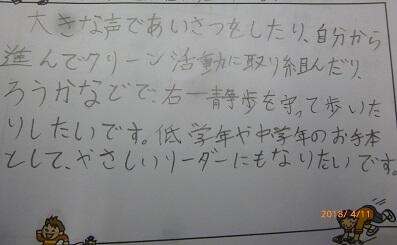 大きな声であいさつをしたり、自分から
進んでクリーン活動に取り組んだり、
ろうかなどで、右一静歩を守って歩いた
りしたいです。低学年や中学年のお手本
として、やさしいリーダーにもなりたいです。
2018/ 4/11